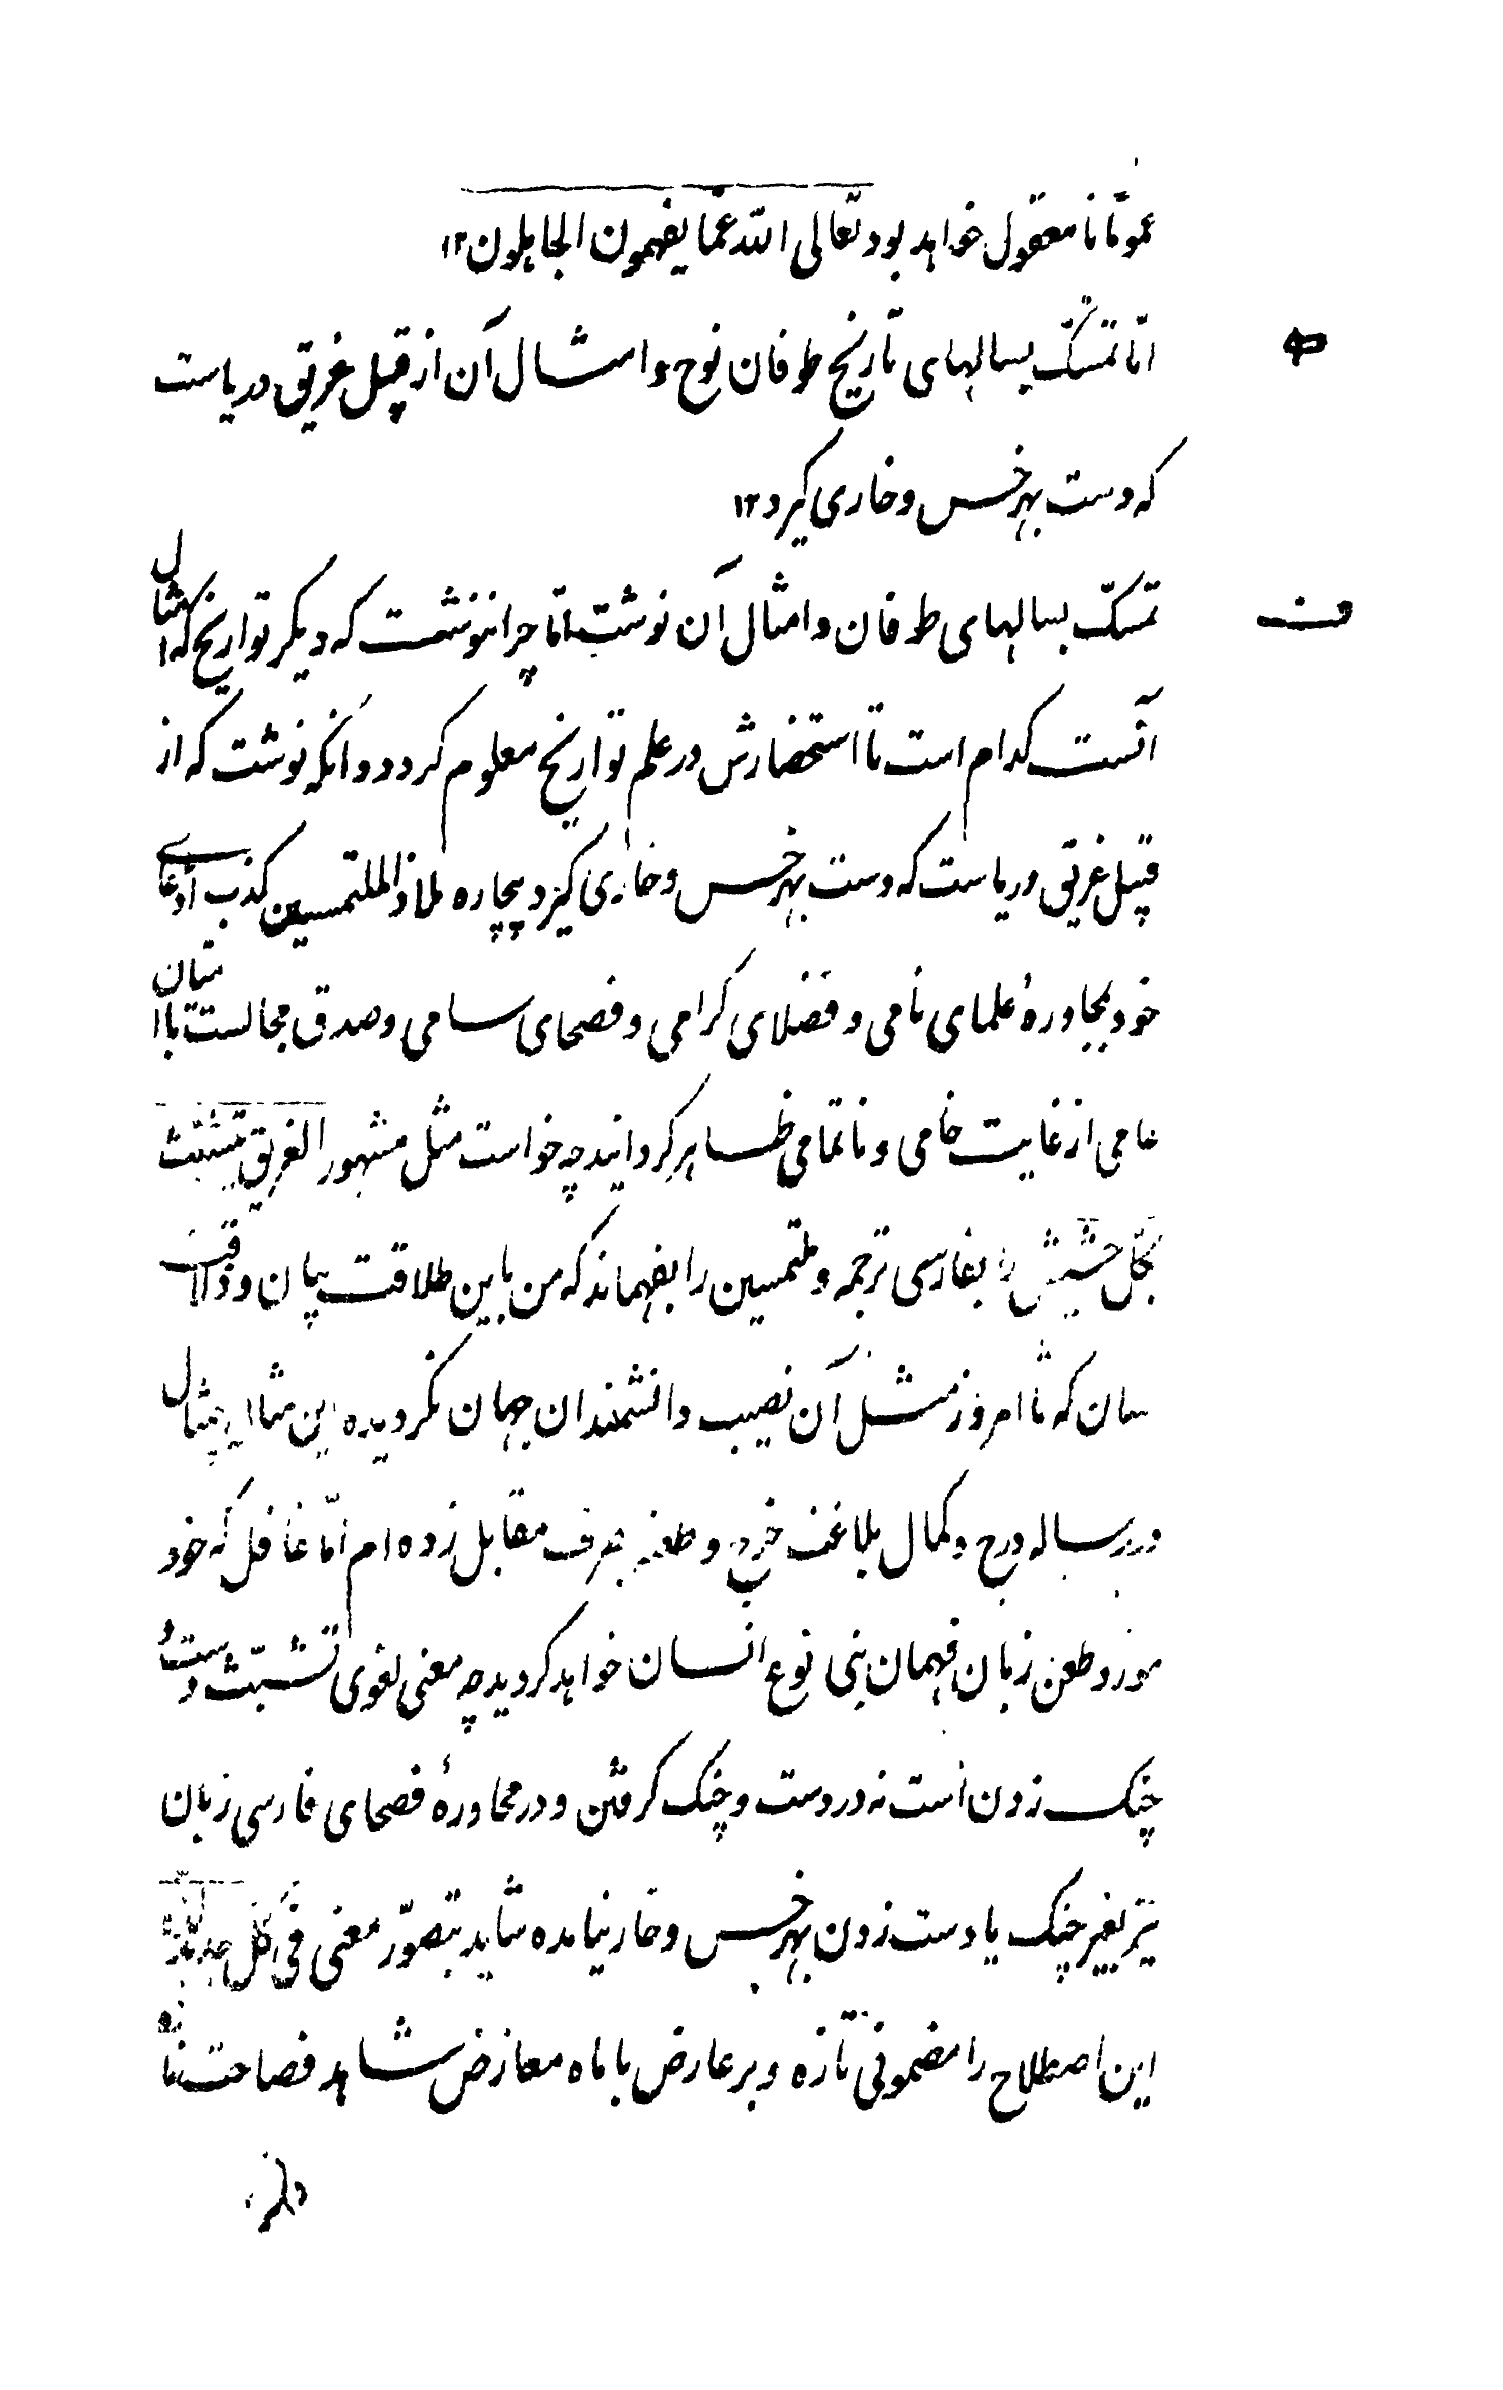 عموماً نامعقول خواهد بود تعالی الله عمّا یفهمون الجاهلون ۱۲
امّا تمسّک بسالهای تاریخ طوفان نوح و امثال آن از قبیل غریق دریاست
که دست بهر خس و خاری گیرد ۱۲
تمسّک بسالهای طوفان و امثال آن نوشت امّا چرا ننوشت که دیگر تواریخ که امثال
آنست کدام است تا استحضارش در علم تواریخ معلوم گردد و آنکه نوشت که از
قبیل غریق دریاست که دست بهر خس و خاری گیرد بیچاره ملاذ الملتمسین کذب ادّعای
خود بمجاورهٔ علمای نامی و فضلای گرامی و فصحای سامی و صدق مجالست با امتیان
عامی از غایت خامی و ناتمامی ظاهر گردانید چه خواست مثل مشهور الغریق یتشبّث
بکلّ حشیش را بفارسی ترجمه و ملتمسین را بفهماند که من باین طلاقت بیان و ذلاقت
سان که تا امروز مثل آن نصیب دانشمندان جهان نگردیده این مثال بیمثال
در رساله درج و کمال بلاغت خرج و طعنه بحرف مقابل زده ام امّا غافل که خود
مورد طعن زبان فهمان بنی نوع انسان خواهد گردید چه معنی لغوی تشبّث دست و
چنگ زدن است نه در دست و چنگ گرفتن و در محاورهٔ فصحای فارسی زبان
نیز بغیر چنگ یا دست زدن بهر خس و خار نیامده شاید بتصوّر معنی فی کلّ جدید لذّة
این اصطلاح را مضمونی تازه و بر عارض با ماه معارض شاهد فصاحت